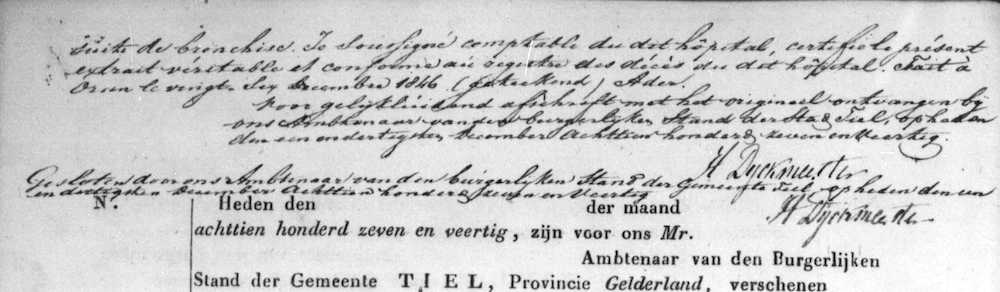 suite de bronchise. Je Soussigné comptable du dit hôpital, certifie le présent
extrait véritable et conforme au registre des décès du dit hôpital. Fait à
Oran le vingt Six Decembre 1846 (geteekend) Ader.
Voor gelijkluidend afschrift met het origineel ontvangen bij
ons Ambtenaar van den burgerlijken Stand der Stad Tiel, op heden
den een en dertigsten December Achttien honderd zeven en Veertig.
H Dyckmeester
Gesloten door ons Ambtenaar van den burgerlijken Stand der Gemeente Tiel, op heden den een
en dertigsten December Achttien honderd zeven en Veertig
H Dyckmeester
N.
Heden den der maand
achttien honderd zeven en veertig, zijn voor ons Mr.
Ambtenaar van den Burgerlijken
Stand der Gemeente TIEL, Provincie Gelderland, verschenen